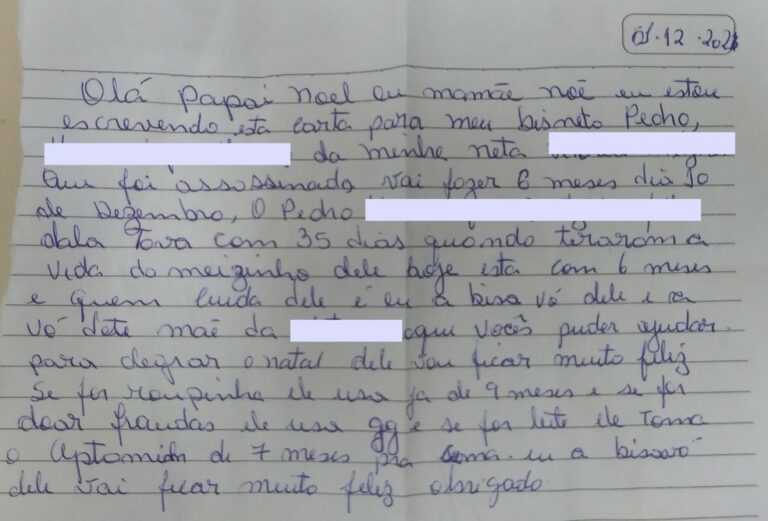 01.12.2021
Olá Papai Noel eu mamãe noê eu estou
escrevendo esta carta para meu bisneto Pedro,
da minha neta
Que foi assossinada vai fazer 6 meses dia 10
de Dezembro, O Pedro
dala Tava com 35 dias quando tirarom a
vida da meizinha dele hoje esta com 6 meses
e quem cuida dele é eu a bisa vó dele e a
vó dete mãe da oque vocês puder ajudar
para alegrar o natal dele vou ficar muito feliz
Se for roupinha ele usa ja de 9 meses e se for
doar fraudas ele usa gg e se for leite ele Toma
o Aptomidn de 7 meses pra sima. eu a bisavó
dele vai ficar muito feliz obrigado